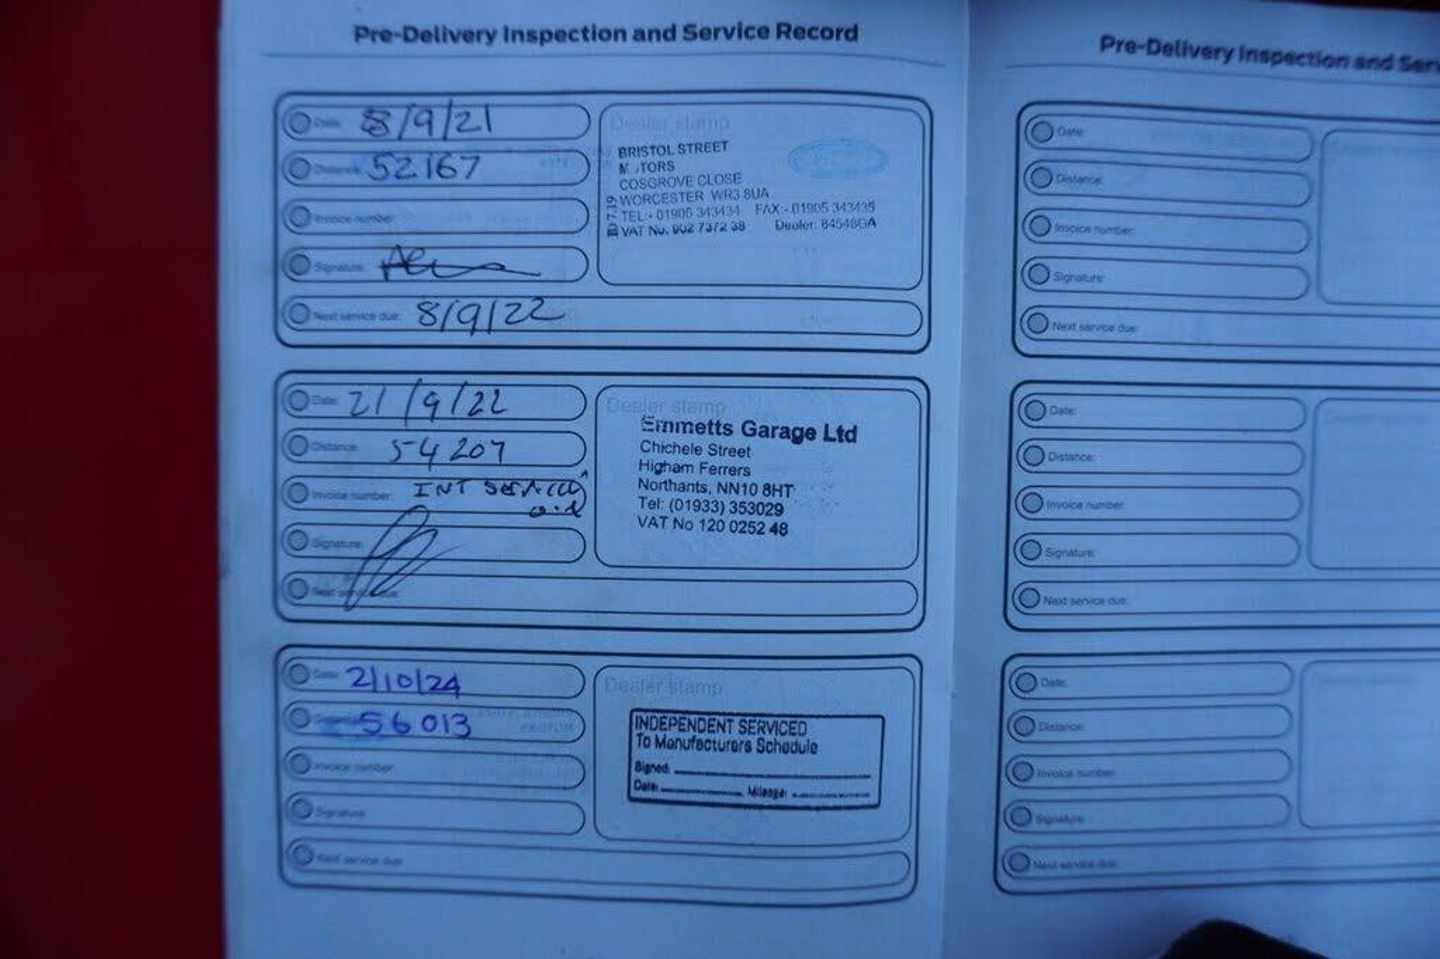 Pre-Delivery Inspection and Service Record
Date: 8/9/21
Distance: 52167
Invoice number:
Signature:
Next service due: 8/9/22
Dealer stamp
Ford
BRISTOL STREET
M TORS
COSGROVE CLOSE
WORCESTER WR3 8UA
TEL:- 01905 343434 FAX:- 01905 343435
VAT No. 902 7372 38 Dealer: 84548GA
Date: 21/9/22
Distance: 54207
Invoice number: INT Service
oil
Signature:
Next service due:
Dealer stamp
Emmetts Garage Ltd
Chichele Street
Higham Ferrers
Northants, NN10 8HT
Tel: (01933) 353029
VAT No 120 0252 48
Date: 2/10/24
Distance: 56013
Invoice number:
Signature:
Next service due:
Dealer stamp
INDEPENDENT SERVICED
To Manufacturers Schedule
Signed:
Date: Mileage:
Pre-Delivery Inspection and Serv
Date:
Distance:
Invoice number:
Signature:
Next service due:
Date:
Distance:
Invoice number:
Signature:
Next service due:
Date:
Distance:
Invoice number:
Signature:
Next service due: